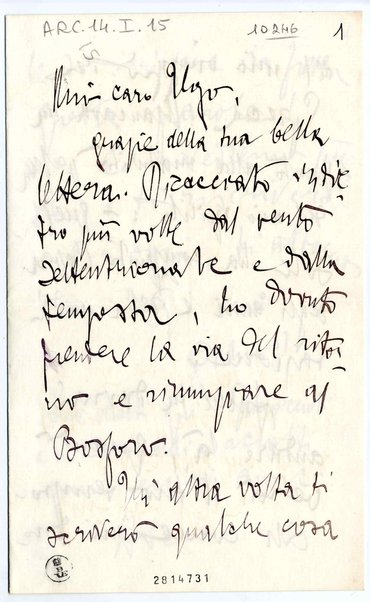 ARC.14.I.15
10246
1
Mio caro Ugo,
grazie della tua bella
lettera. Ricacciato indie-
tro più volte dal vento
settentrionale e dalla
tempesta, ho dovuto
prendere la via del ritor
no e rinunziare al
Bosforo.
Un'altra volta ti
scriverò qualche cosa
2814731